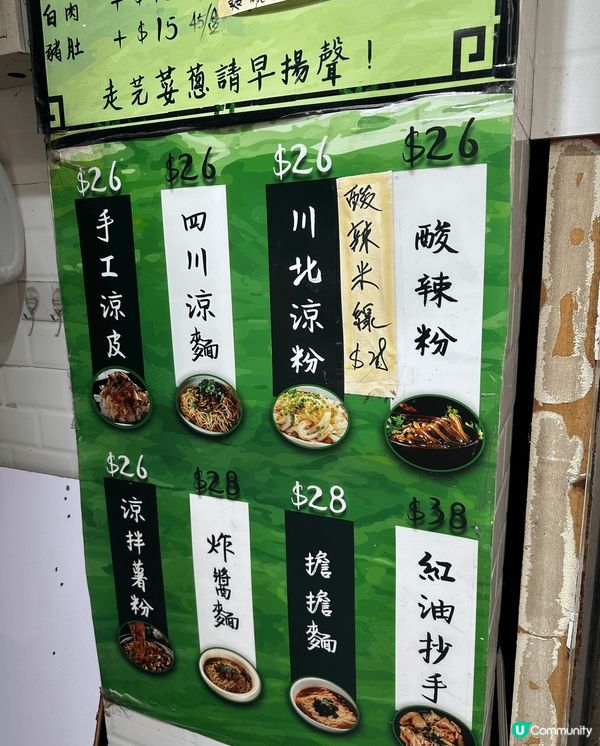 白肉
豬肚 +$15 45/盒
走芫荽蔥請早揚聲！
$26
手工涼皮
$26
四川涼麵
$26
川北涼粉
酸辣米線 $28
$26
酸辣粉
$26
涼拌薯粉
$28
炸醬麵
$28
擔擔麵
$38
紅油抄手
U Community